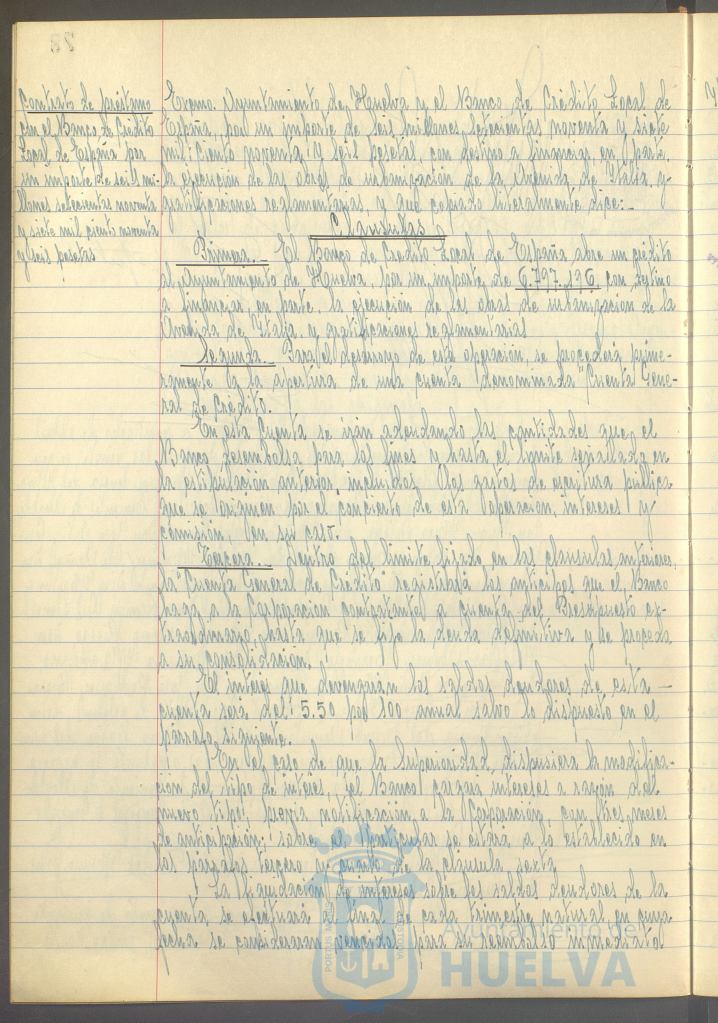 Contrato de préstamo
con el Banco de Crédito
Local de España por
un importe de seis mi-
llones setecientas noventa
y siete mil ciento noventa
y seis pesetas
Excmo. Ayuntamiento de Huelva y el Banco de Crédito Local de
España, por un importe de seis millones setecientas noventa y siete
mil ciento noventa y seis pesetas, con destino a financiar, en parte,
la ejecución de las obras de urbanización de la Avenida de Italia, y
gratificaciones reglamentarias, y que copiado literalmente dice:-
Cláusulas
Primera.- El Banco de Crédito Local de España abre un crédito
al Ayuntamiento de Huelva, por un importe de 6.797.196 con destino
a financiar, en parte, la ejecución de las obras de urbanización de la
Avenida de Italia, y gratificaciones reglamentarias
Segunda. Para el desarrollo de esta operación, se procederá prime-
ramente a la apertura de una cuenta denominada "Cuenta Gene-
ral de Crédito.
En esta cuenta se irán adeudando las cantidades que el
Banco desembolsa para los fines y hasta el límite señalado en
la estipulación anterior, incluidos los gastos de escritura pública
que se originen por el concierto de esta operación, intereses y
comisión, en su caso.
Tercera.- Dentro del límite fijado en las cláusulas anteriores,
la "Cuenta General de Crédito" registrará los anticipos que el Banco
haga a la Corporación contratante a cuenta del Presupuesto ex-
traordinario, hasta que se fije la deuda definitiva y se proceda
a su consolidación.
El interés que devengarán los saldos deudores de esta -
cuenta será del 5.50 por 100 anual salvo lo dispuesto en el
párrafo siguiente.
En el caso de que la Superioridad dispusiera la modifica-
ción del tipo de interés, el Banco cargará intereses a razón del
nuevo tipo, previa notificación a la Corporación, con tres meses
de anticipación; sobre el particular se estará a lo establecido en
los párrafos tercero y cuarto de la cláusula sexta
La liquidación de intereses sobre los saldos deudores de la
cuenta se efectuará a final de cada trimestre natural, en cuya
fecha se considerarán vencidos para su reembolso inmediato
Ayuntamiento de
HUELVA